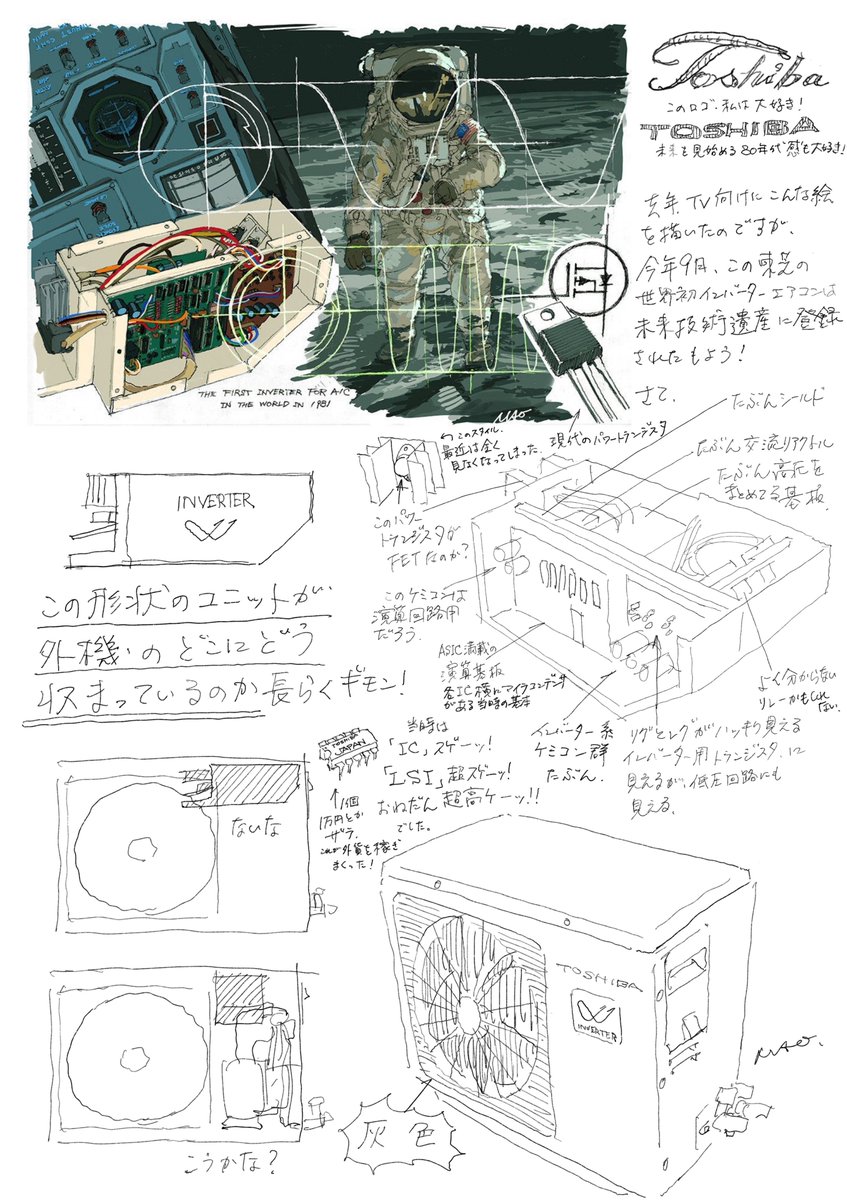 Toshiba
このロゴ、私は大好き!
TOSHIBA
未来を見始める80年代感も大好き!
去年TV向けにこんな絵
を描いたのですが、
今年9月、この東芝の
世界初インバーターエアコンは
未来技術遺産に登録
されたもよう!
さて、
THE FIRST INVERTER FOR A/C
IN THE WORLD IN 1981
MAO.
このスタイル、
最近は全く
見なくなってしまった。
現代のパワートランジスタ
たぶんシールド
たぶん交流リアクトル
たぶん高圧を
まとめてる基板
このパワー
トランジスタが
FETなのか?
このケミコンは
演算回路用
だろう。
ASIC満載の
演算基板
各IC横にマイラコンデンサ
がある当時の基本
インバーター系
ケミコン群
たぶん。
よく分からない
リレーかもしれない。
リグとレグがハッキリ見える
インバーター用トランジスタ、に
見えるが、低圧回路にも
見える。
INVERTER
この形状のユニットが
外機のどこにどう
収まっているのか長らくギモン!
TOSHIBA
JAPAN
当時は
「IC」スゲーッ!
「LSI」超スゲーッ!
おねだん超高ケーッ!!
でした。
1個
1万円とか
ザラ。
これが外貨を稼ぎ
まくった!
ないな
こうかな?
TOSHIBA
INVERTER
灰色
MAO.